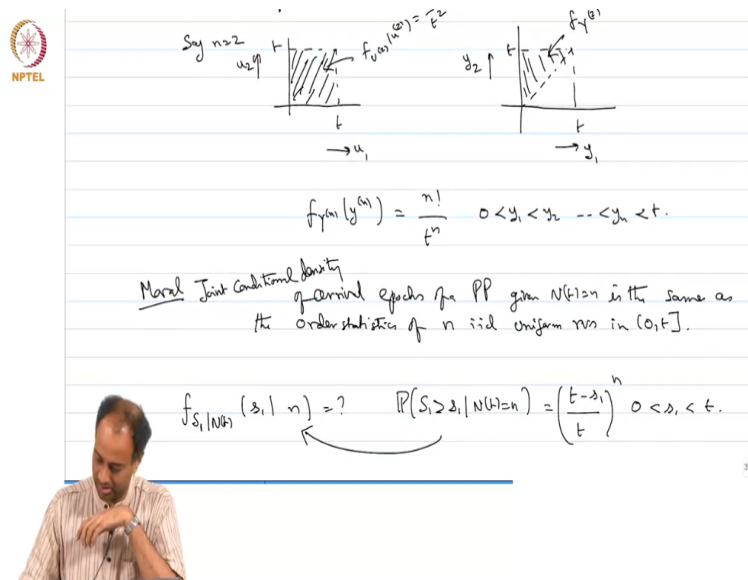 Say n=2
u₂↑ t
f_U⁽²⁾(u⁽²⁾) = t⁻²
t
→ u₁
f_Y⁽²⁾
y₂↑ t
t
→ y₁
NPTEL
f_Y⁽ⁿ⁾(y⁽ⁿ⁾) = n!/tⁿ 0 < y₁ < y₂ -- < yₙ < t.
Moral Joint Conditional density
of arrival epochs of a PP given N(t)=n is the same as
the order statistics of n iid uniform rvs in (0,t].
f_S₁|N(t) (s₁ | n) = ? P(S₁ > s₁ | N(t)=n) = ((t-s₁)/t)ⁿ 0 < s₁ < t.